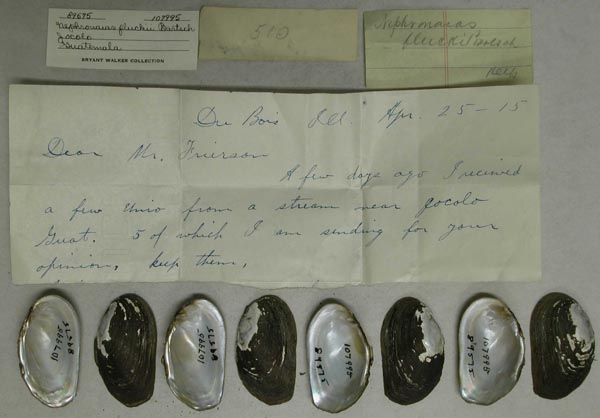 89575 107995
Nephronaias fluckii Bartsch
Jocolo
Guatemala
BRYANT WALKER COLLECTION
510
Nephronaias
fluckii Bartsch
Du Bois Ill. Apr. 25-15
Dear Mr. Frierson
A few days ago I received
a few Unio from a stream near Jocolo
Guat. 5 of which I am sending for your
opinion, keep them,
107995
89575
107995
89575
107995
89575
107995
89575